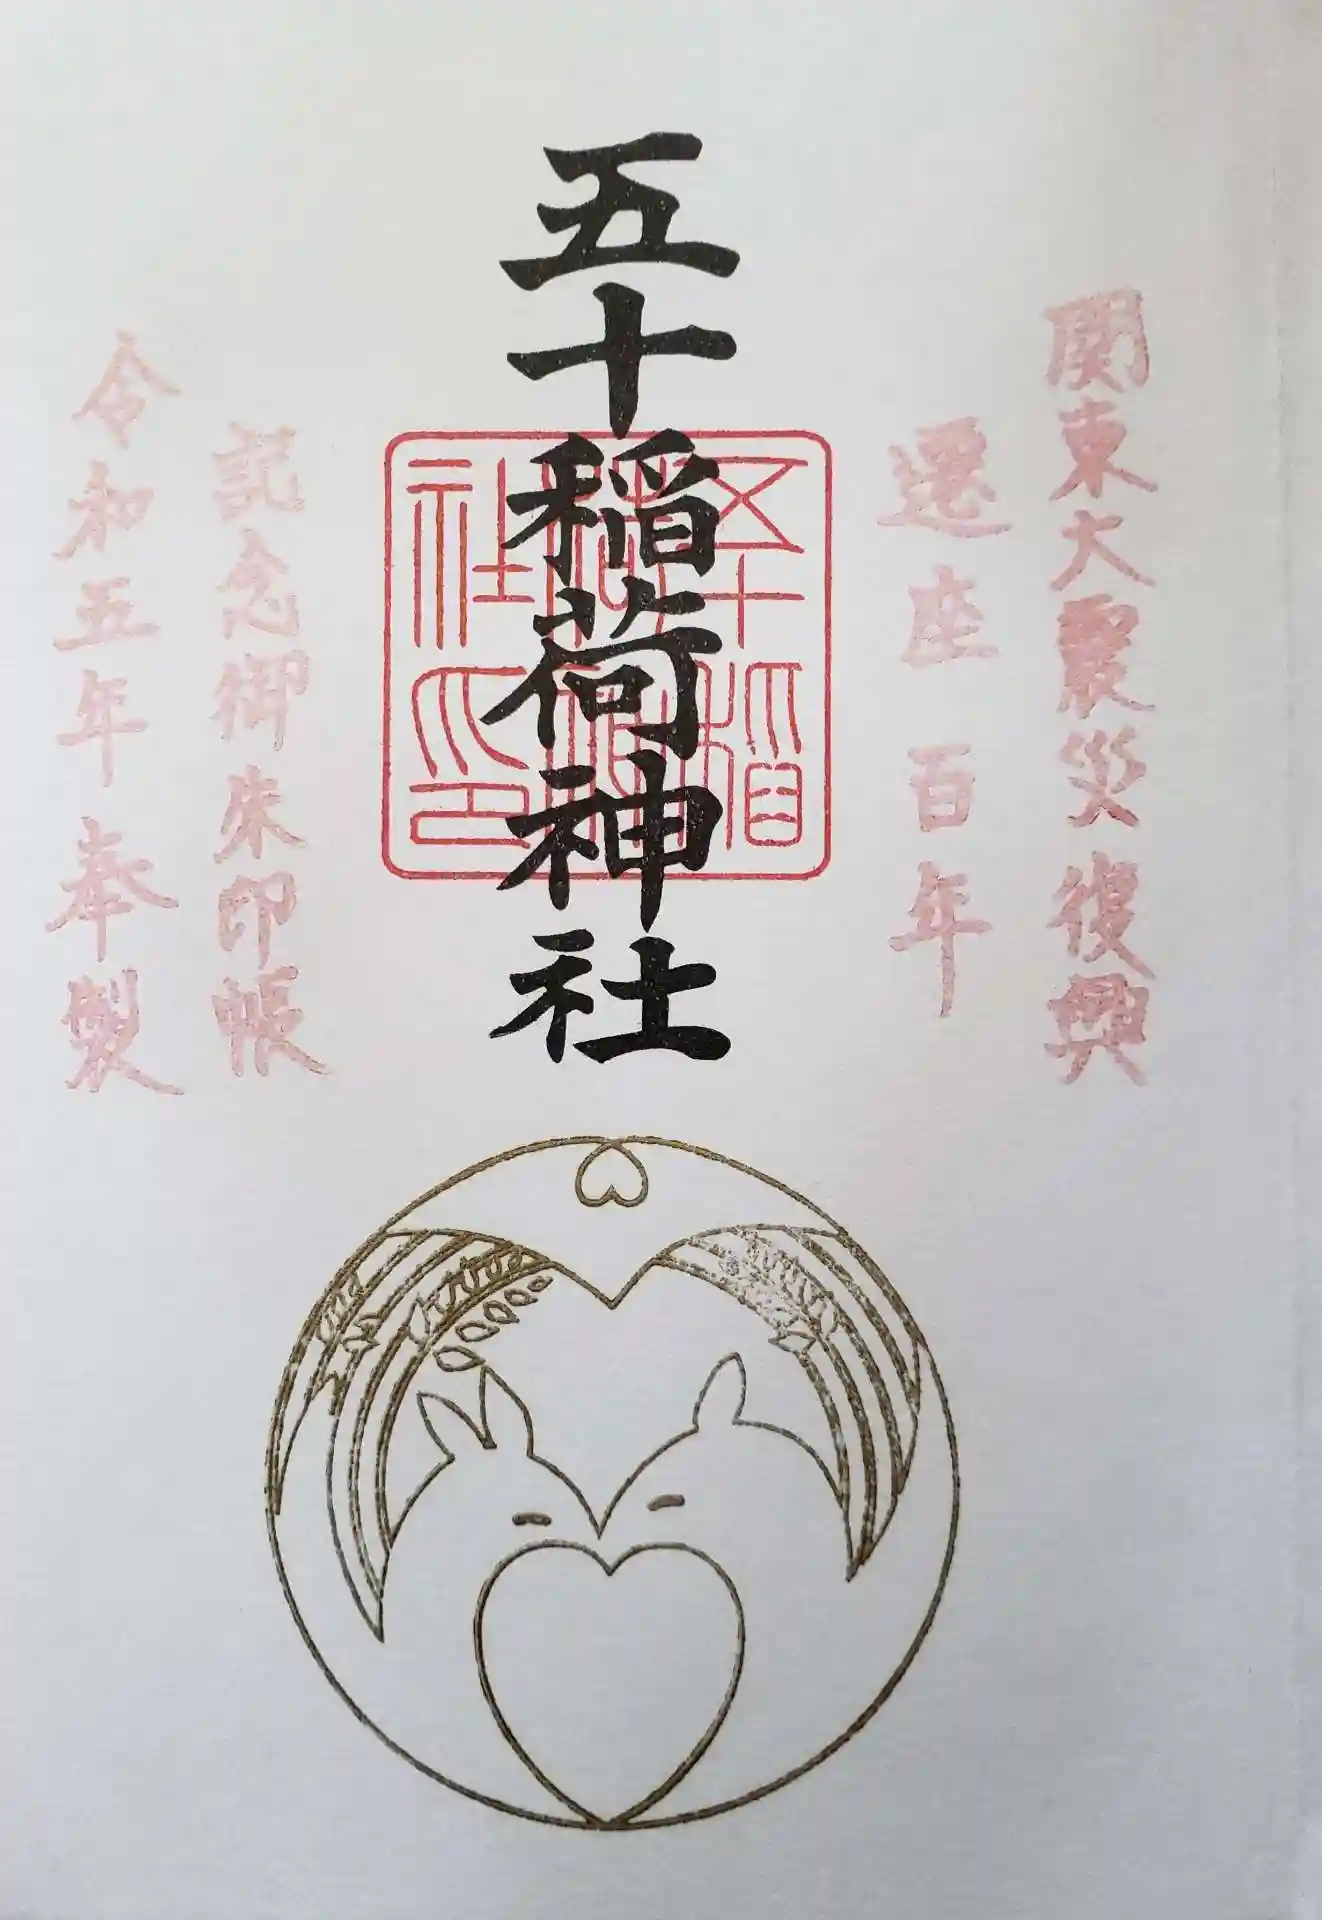 関東大震災復興
遷座百年
五十稲荷神社
五十稲荷神社御印
記念御朱印帳
令和五年奉製